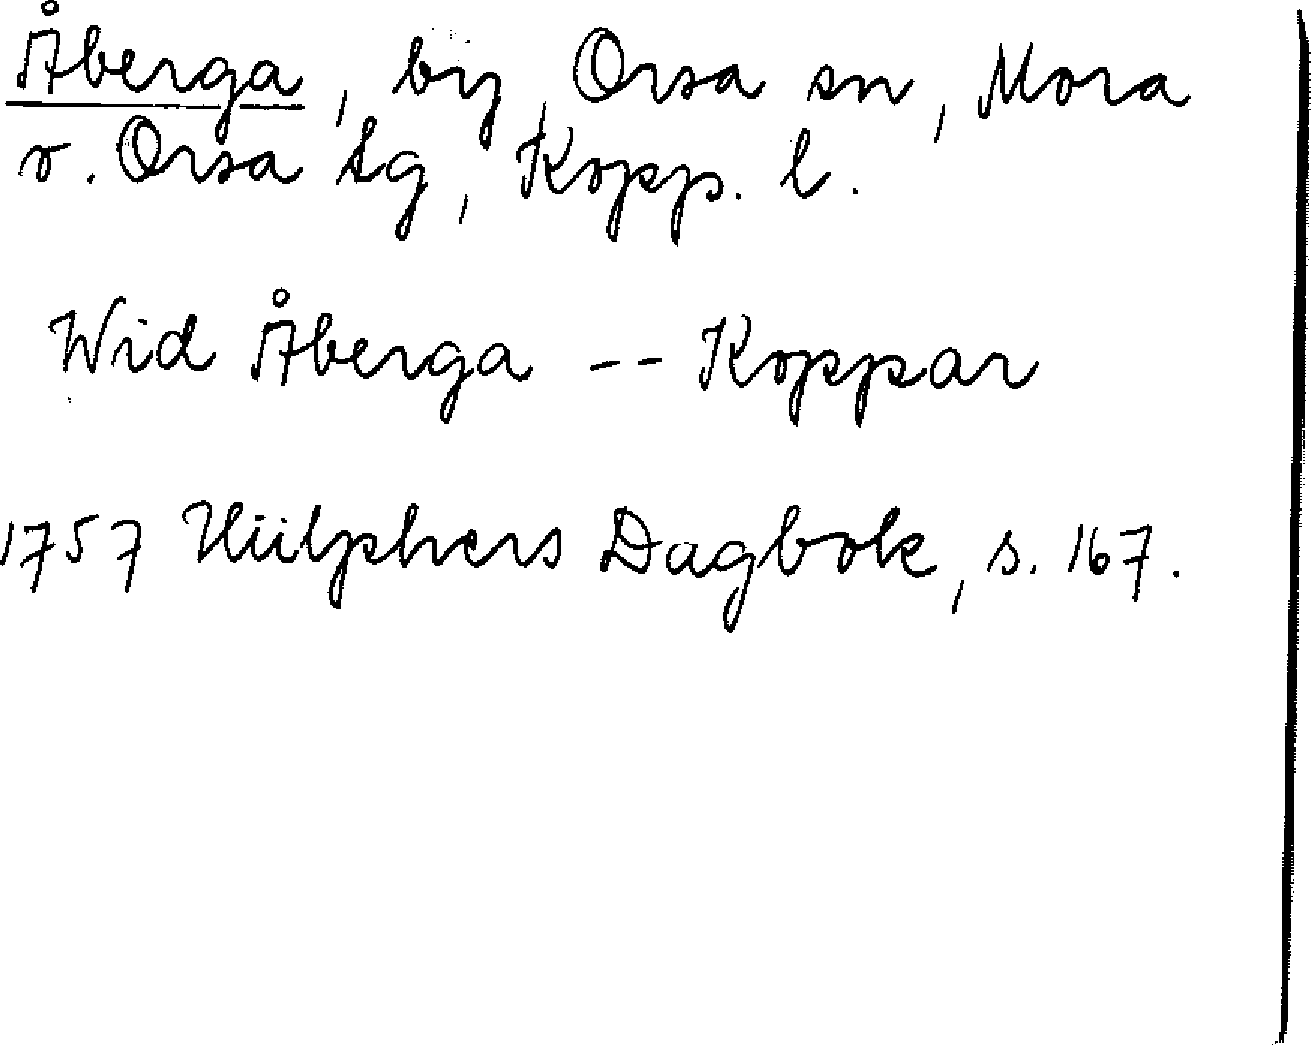 Åberga, by, Orsa sn, Mora
o. Orsa tg, Kopp. l.
Wid Åberga -- Koppar
1757 Hülphers Dagbok, s. 167.